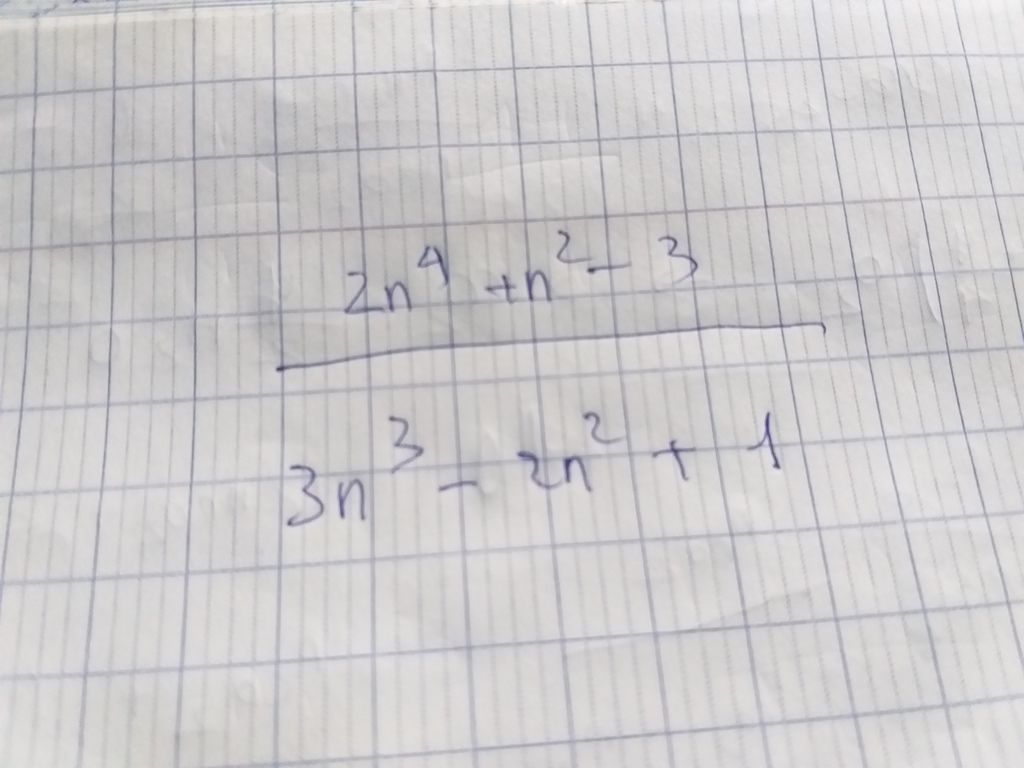 2n⁴ + n² - 3
3n³ - 2n² + 1